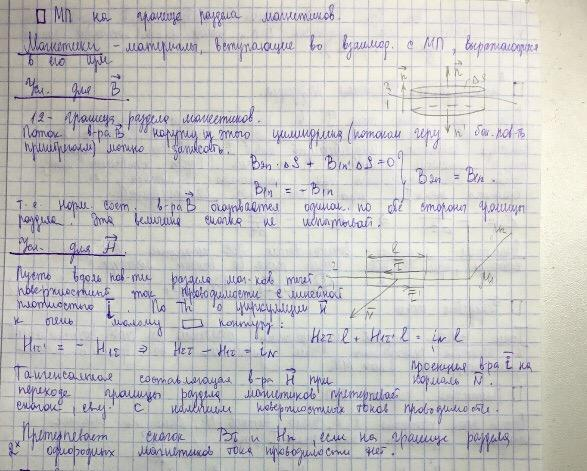 МП на границе раздела магнетиков.
Магнетики - материалы, вступающие во взаимод. с МП, выражающееся
в его изм.
Усл. для B⃗
n⃗ n⃗ ΔS
2
1
n⃗'
12 - граница раздела магнетиков.
Поток в-ра B⃗ наружу из этого цилиндрика (потоком через бок. пов-ть
пренебрегаем) можно записать:
B2n · ΔS + B1n' ΔS = 0
B1n' = - B1n
B2n = B1n.
т.е. норм. сост. в-ра B⃗ оказывается одинак. по обе стороны границы
раздела. Эта величина скачка не испытывает.
Усл. для H⃗
l
2
1
τ⃗
τ⃗'
N⃗
Пусть вдоль пов-ти раздела маг-ков течёт
поверхностный ток проводимости с линейной
плотностью i⃗. По Th о циркуляции H⃗
к очень малому контуру:
H2τ l + H1τ' l = iN l
H1τ' = - H1τ ⇒ H2τ - H1τ = iN
проекция в-ра i⃗ на
нормаль N⃗.
Тангенсальная составляющая в-ра H⃗ при
переходе границы раздела магнетиков претерпевает
скачок, связ. с наличием поверхностных токов проводимости.
Претерпевает скачок Bτ и Hn, если на границе раздела
2х однородных магнетиков тока проводимости нет.